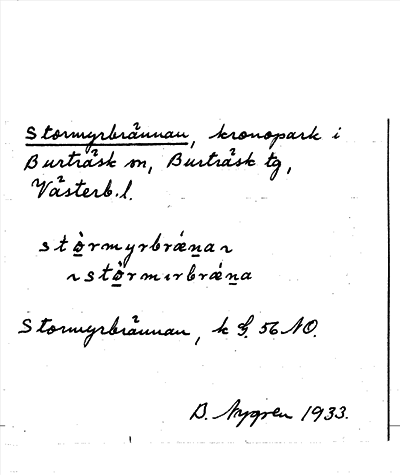 Stormyrbrännan, kronopark i
Burträsk sn, Burträsk tg,
Västerb. l.
stò̠rmyrbrǽn̠a ~
~ stò̠rmιrbrǽn̠a
Stormyrbrännan, k G. 56 NO.
B. Nygren 1933.